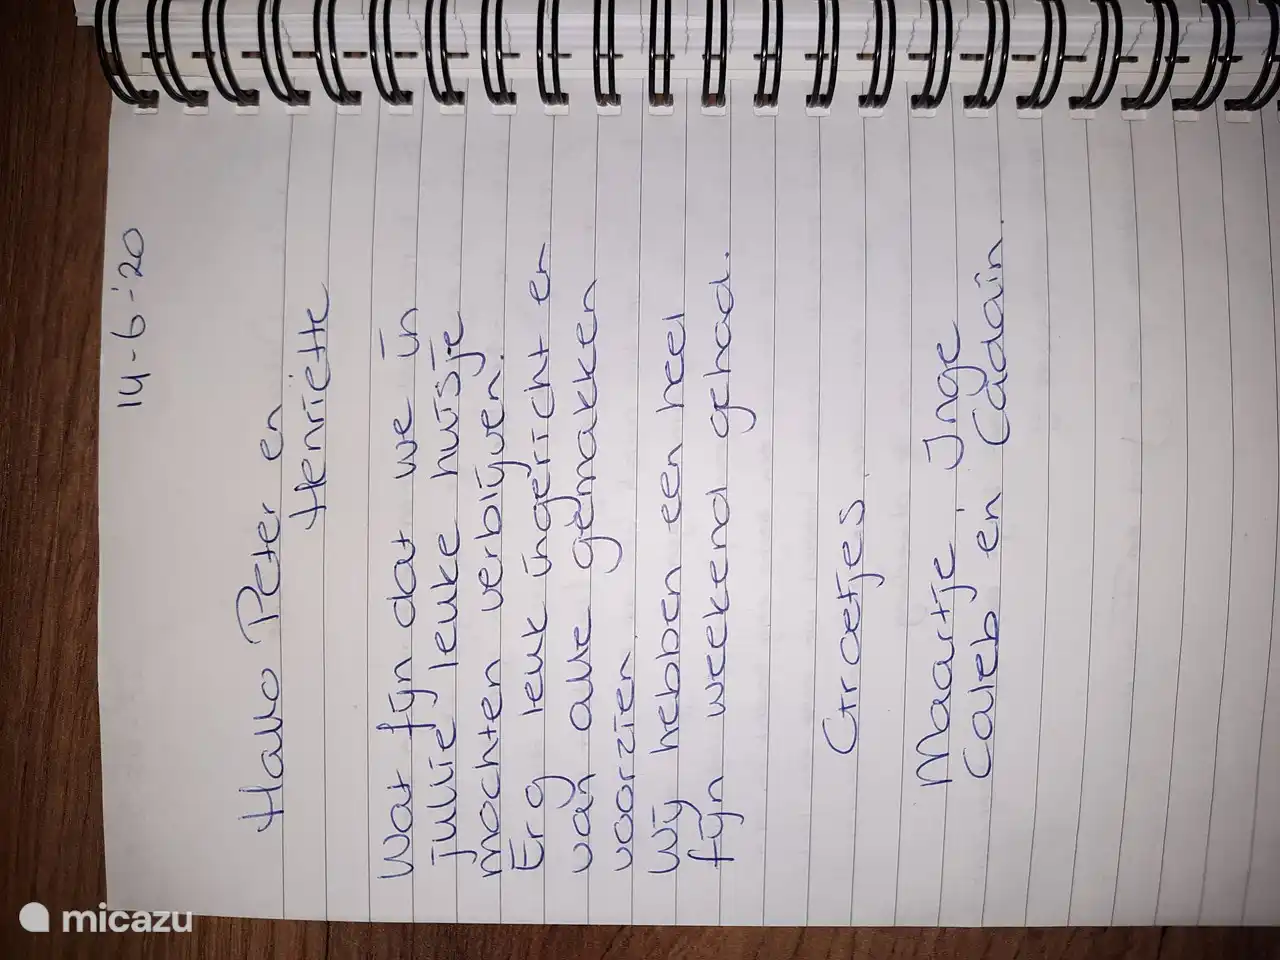 14-6-'20
Hallo Peter en
Henriëtte
Wat fijn dat we in
jullie leuke huisje
mochten verblijven.
Erg leuk ingericht en
van alle gemakken
voorzien
Wij hebben een heel
fijn weekend gehad.
Groetjes
Maartje, Inge
Caleb en Cadain.
micazu